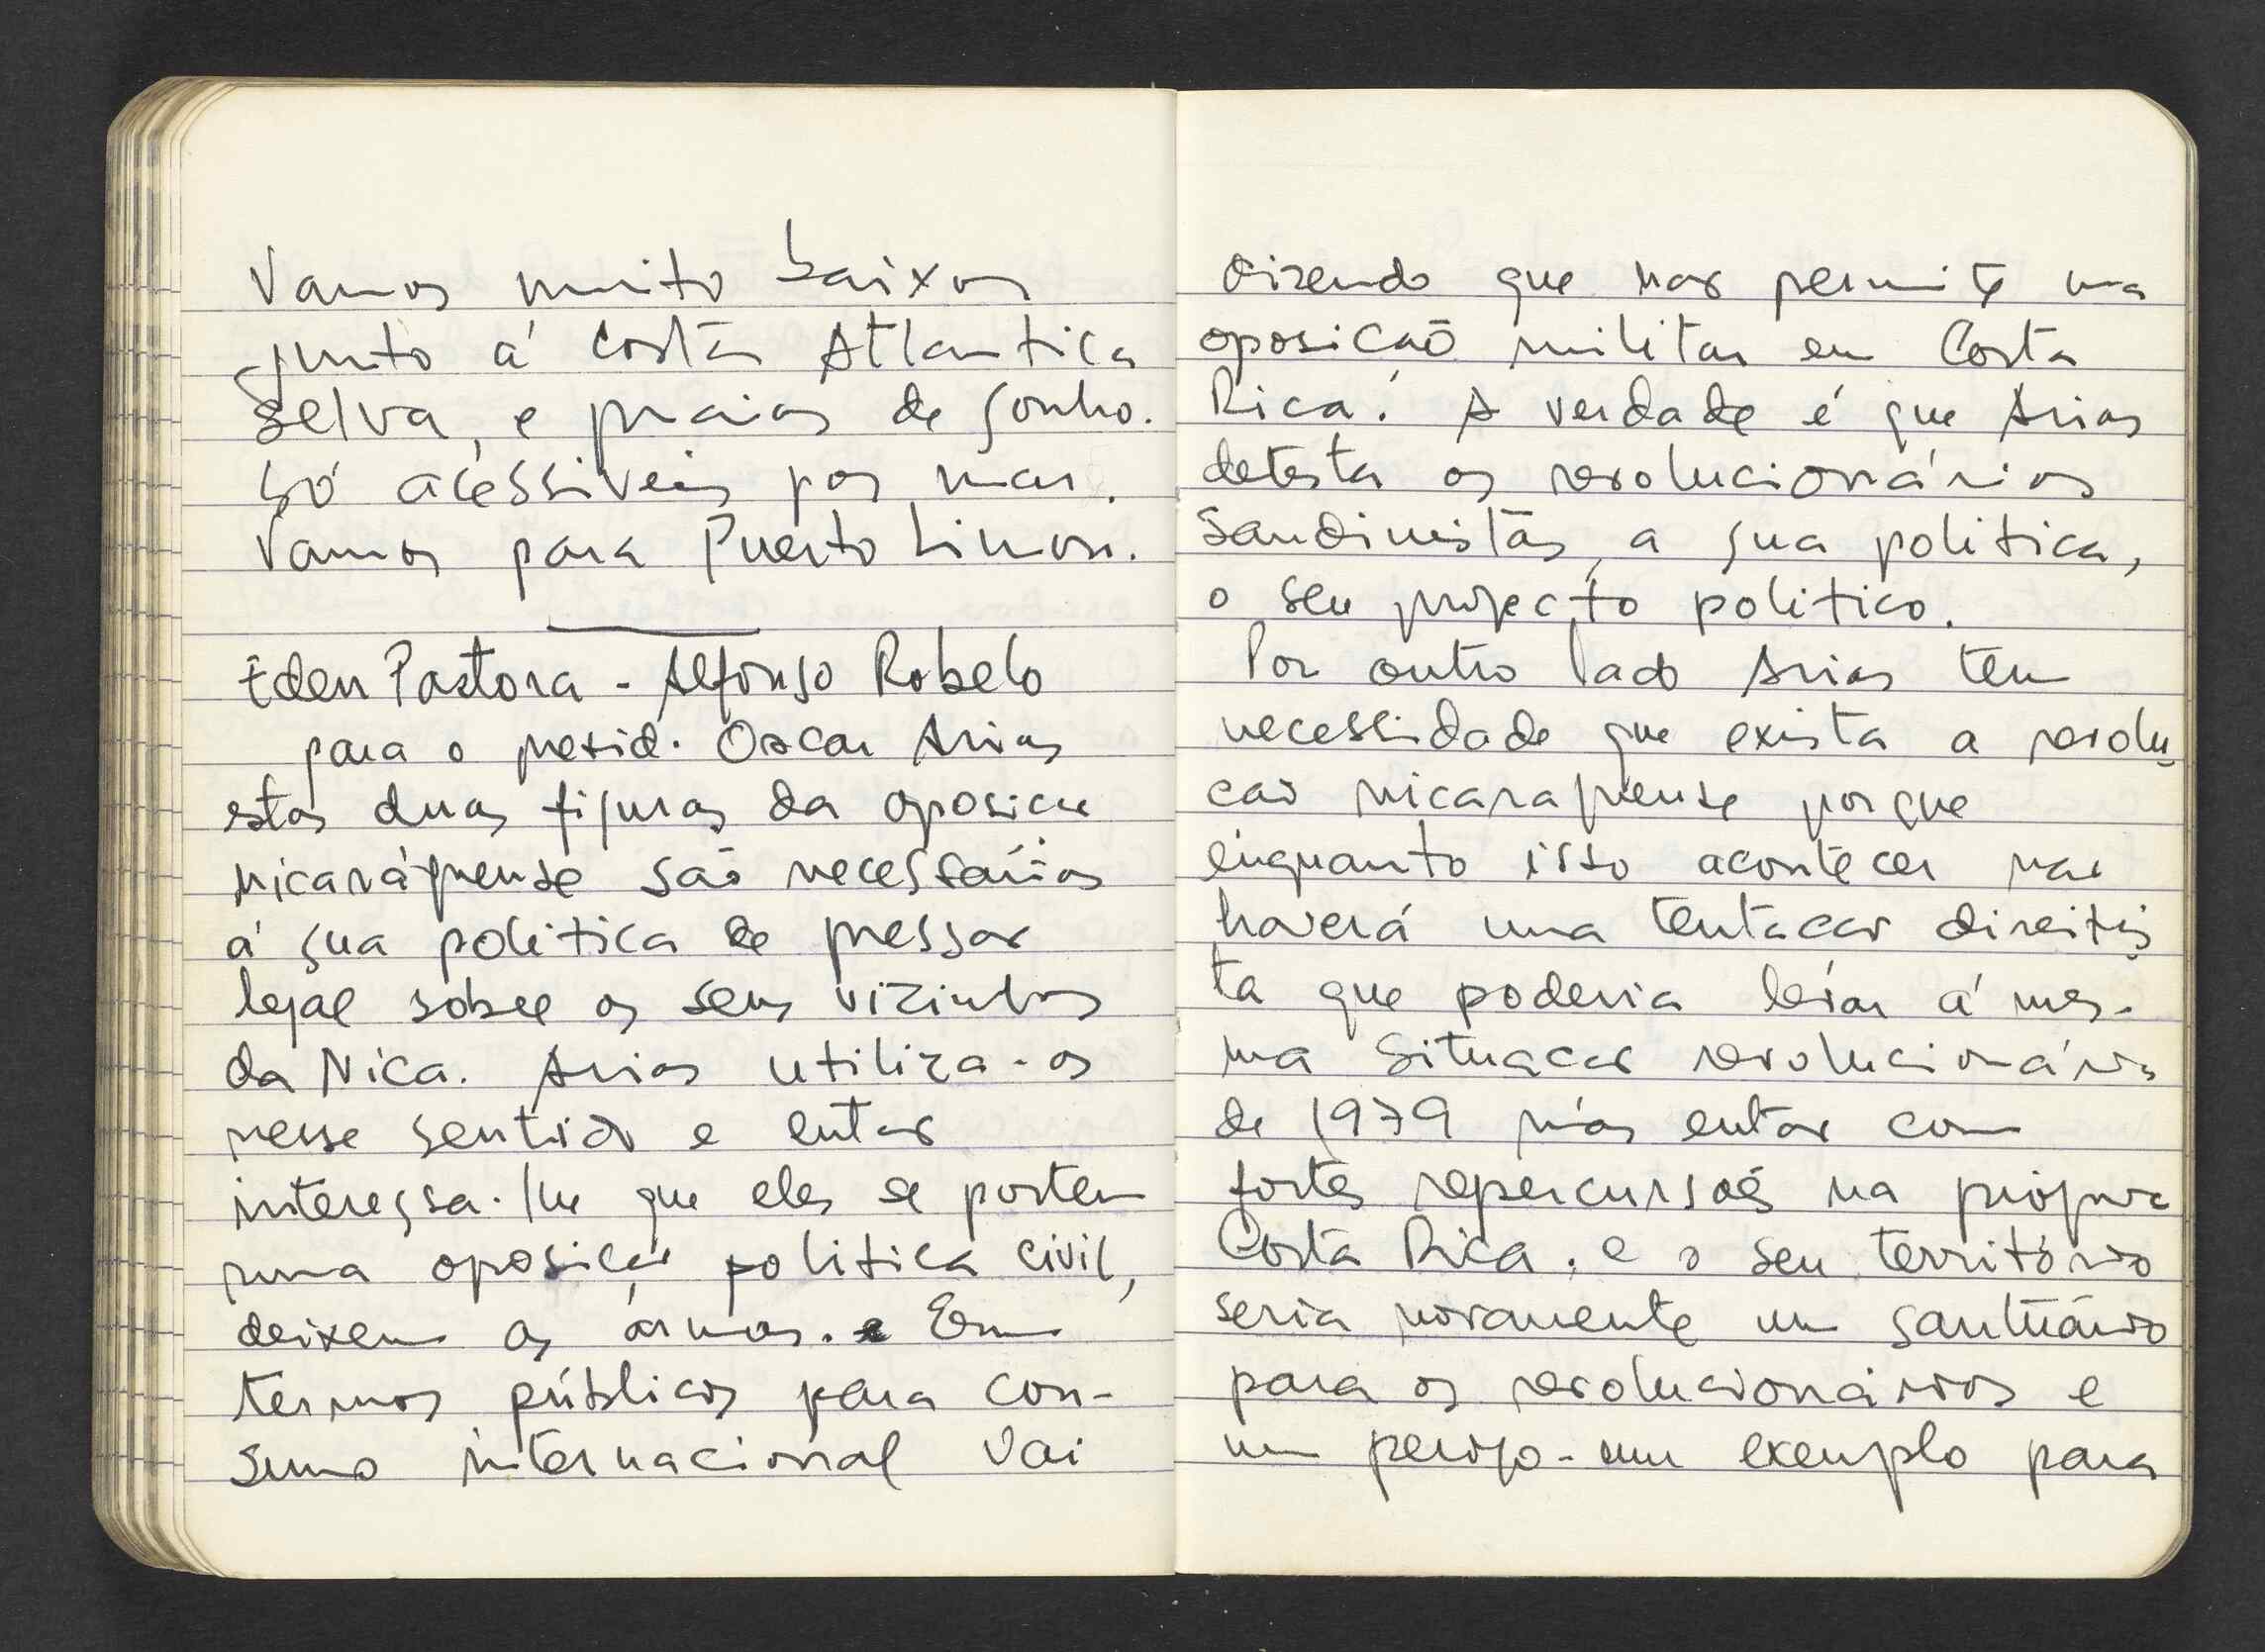 Vamos muito baixos
junto á costa Atlantica
selva, e praias de sonho.
Só acessiveis por mar.
Vamos para Puerto Limon.
Eden Pastora - Alfonso Robelo
para o presid. Oscar Arias
estas duas figuras da oposicao
nicaráguense são necessárias
á sua politica de pressao
legal sobre os seus vizinhos
da Nica. Arias utiliza-os
nesse sentido e entao
interessa-lhe que eles se portem
numa oposição politica civil,
deixem as armas. Em
termos públicos para con-
sumo internacional vai
dizendo que nao permite uma
oposicaõ militar em Costa
Rica. A verdade é que Arias
detesta os revolucionários
Sandinistas, a sua politica,
o seu projecto politico.
Por outro lado Arias tem
necessidade que exista a revolu
cao nicaraguense porque
enquanto isso acontecer nao
haverá uma tentacao direitis
ta que poderia levar á mes-
ma situacao revolucionária
de 1979 mas entao com
fortes repercursoẽs na própria
Costa Rica. e o seu território
seria novamente um santuário
para os revolucionários e
um perigo - um exemplo para